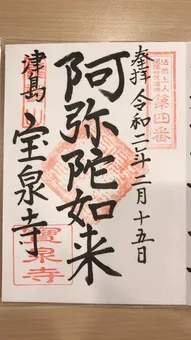 奉拝 令和二年二月十五日
阿弥陀如来
津島 宝泉寺
第四番
寶泉寺